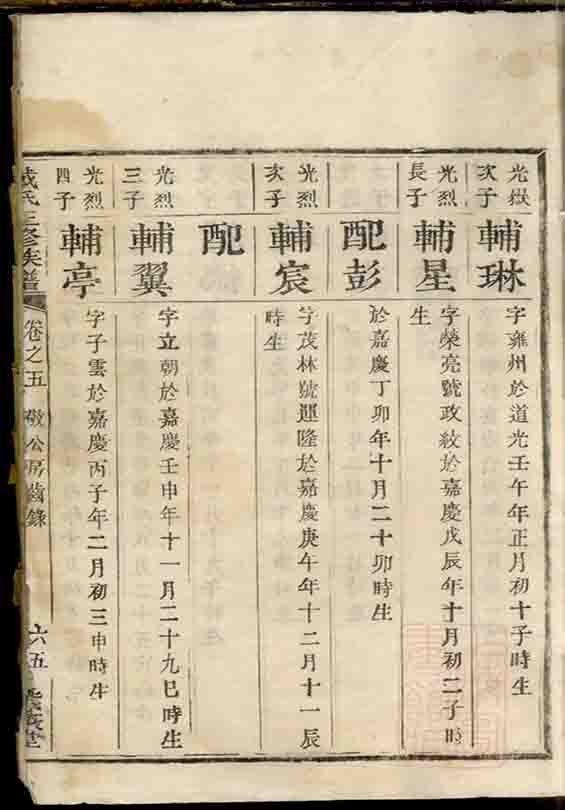 光嶽
次子
輔琳
字雍州於道光壬午年正月初十子時生
光烈
長子
輔星
字榮亮號政紋於嘉慶戊辰年十月初二子時
生
配彭
於嘉慶丁卯年十月二十卯時生
光烈
次子
輔宸
字茂林號運隆於嘉慶庚午年十二月十一辰
時生
配
光烈
三子
輔翼
字立朝於嘉慶壬申年十一月二十九巳時生
光烈
四子
輔亭
字子雲於嘉慶丙子年二月初三申時生
氏三修族譜
卷之五
敬公房齒錄
六五
堂